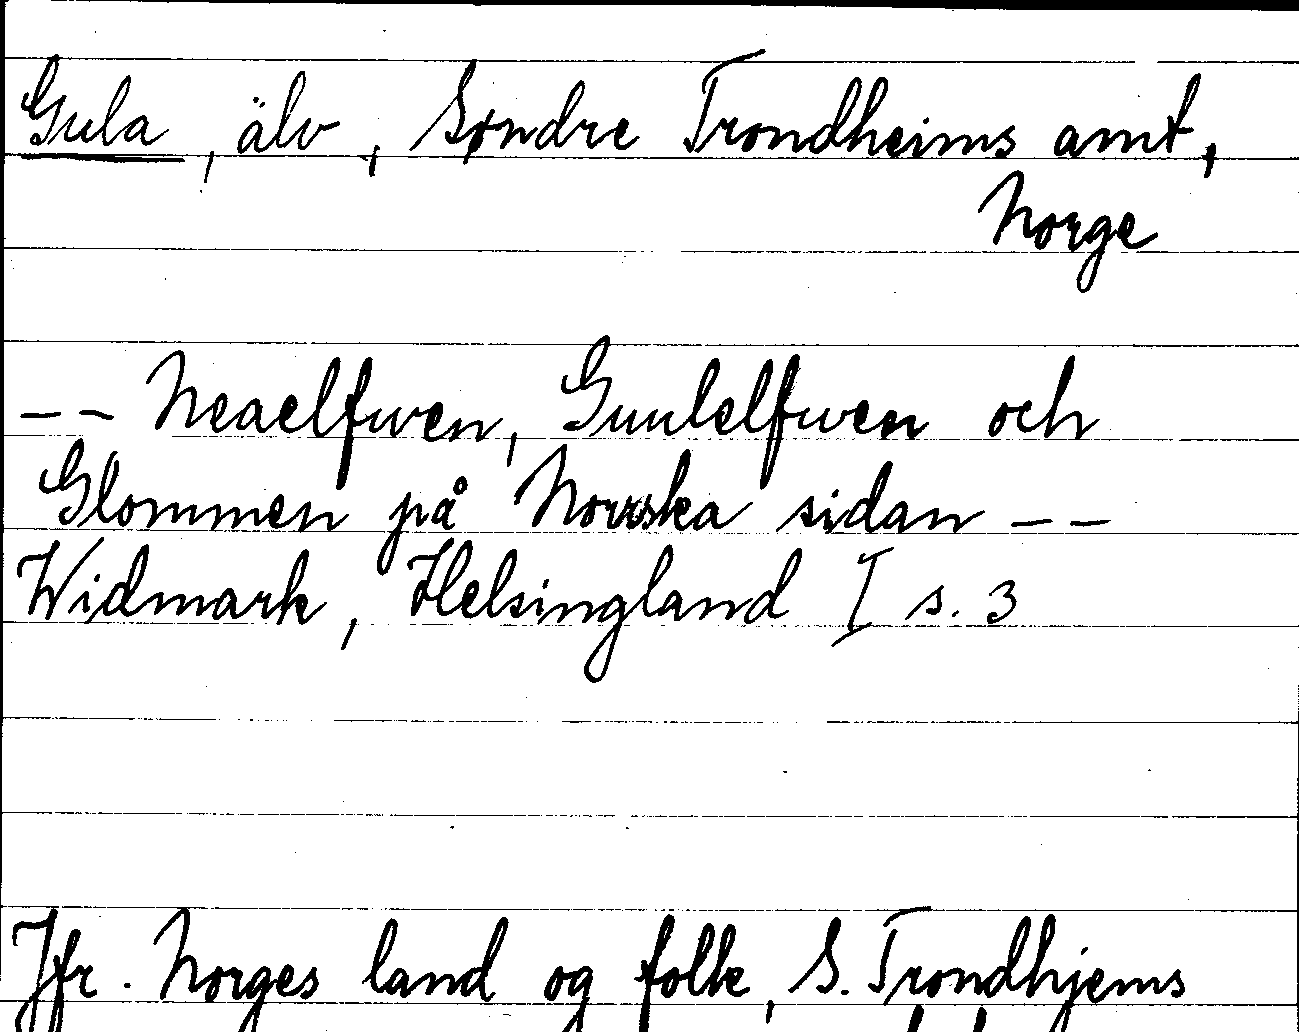 Gula, älv, Søndre Trondheims amt,
Norge
-- Neaelfwen, Guulelfwen och
Glommen på Norrska sidan --
Widmark, Helsingland I s. 3
Jfr. Norges land og folk, S. Trondhjems